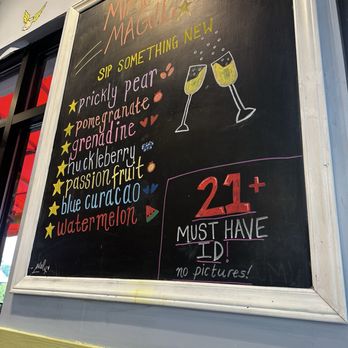 SIP SOMETHING NEW
prickly pear
pomegranate
grenadine
huckleberry
passionfruit
blue curacao
watermelon
21+
MUST HAVE
ID!
no pictures!